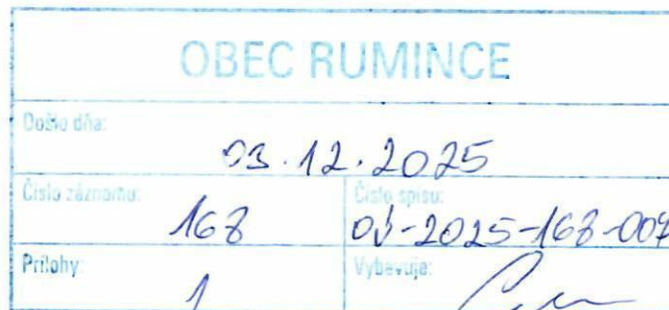 OBEC RUMINCE
Došlo dňa:
03.12.2025
Číslo záznamu: Číslo spisu:
168
Prílohy: Vybavuje:
1